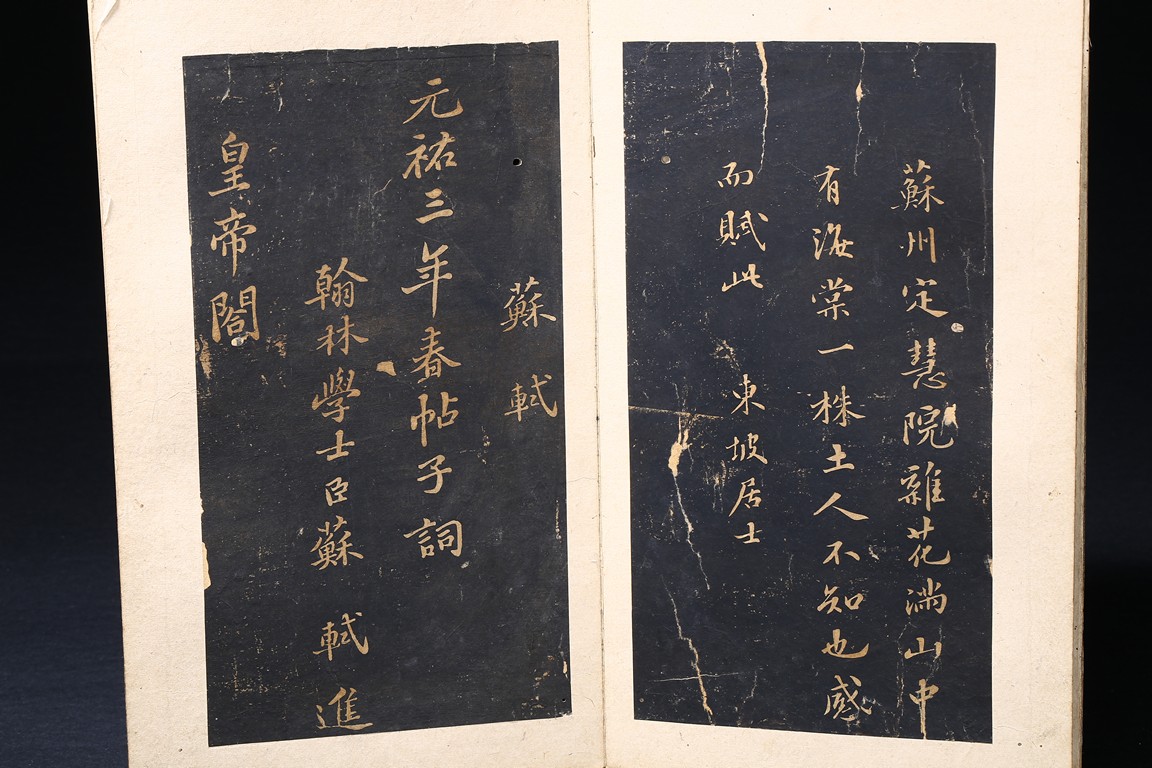 蘇州定慧院雜花滿山中
有海棠一株土人不知也感
而賦此　東坡居士
蘇軾
元祐三年春帖子詞
翰林學士臣蘇軾進
皇帝閤